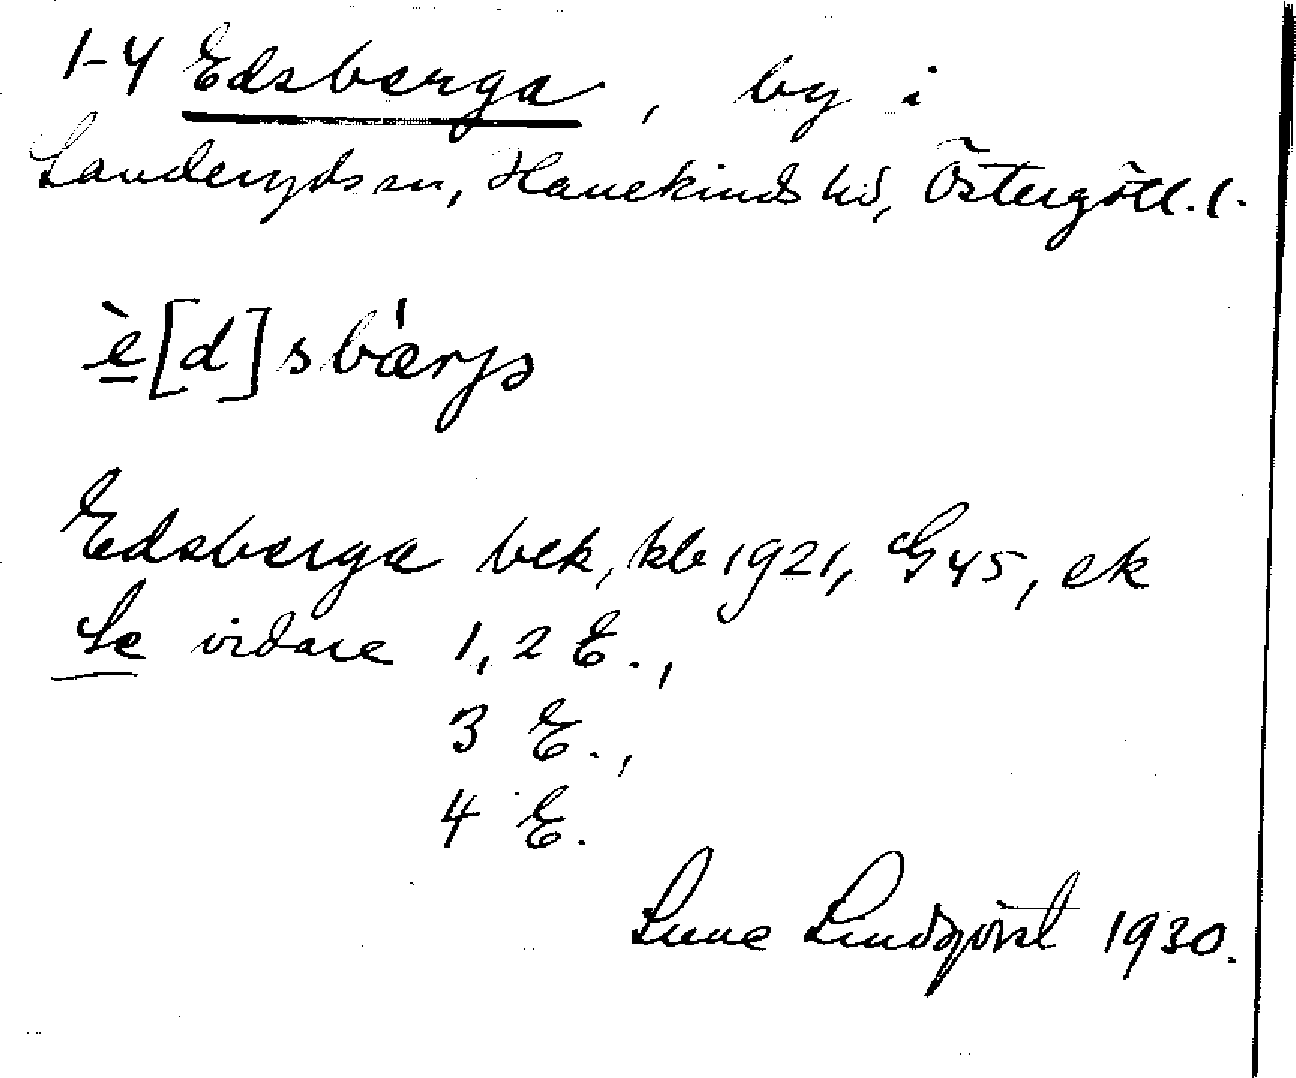 1-4 Edsberga, by i
Landeryds sn, Hanekinds hd, Östergötl. l.
è[d]sbærjə
Edsberga bek, kb 1921, G45, ek
Se vidare 1, 2 E.,
3 E.,
4 E.
Sune Lindqvist 1930.